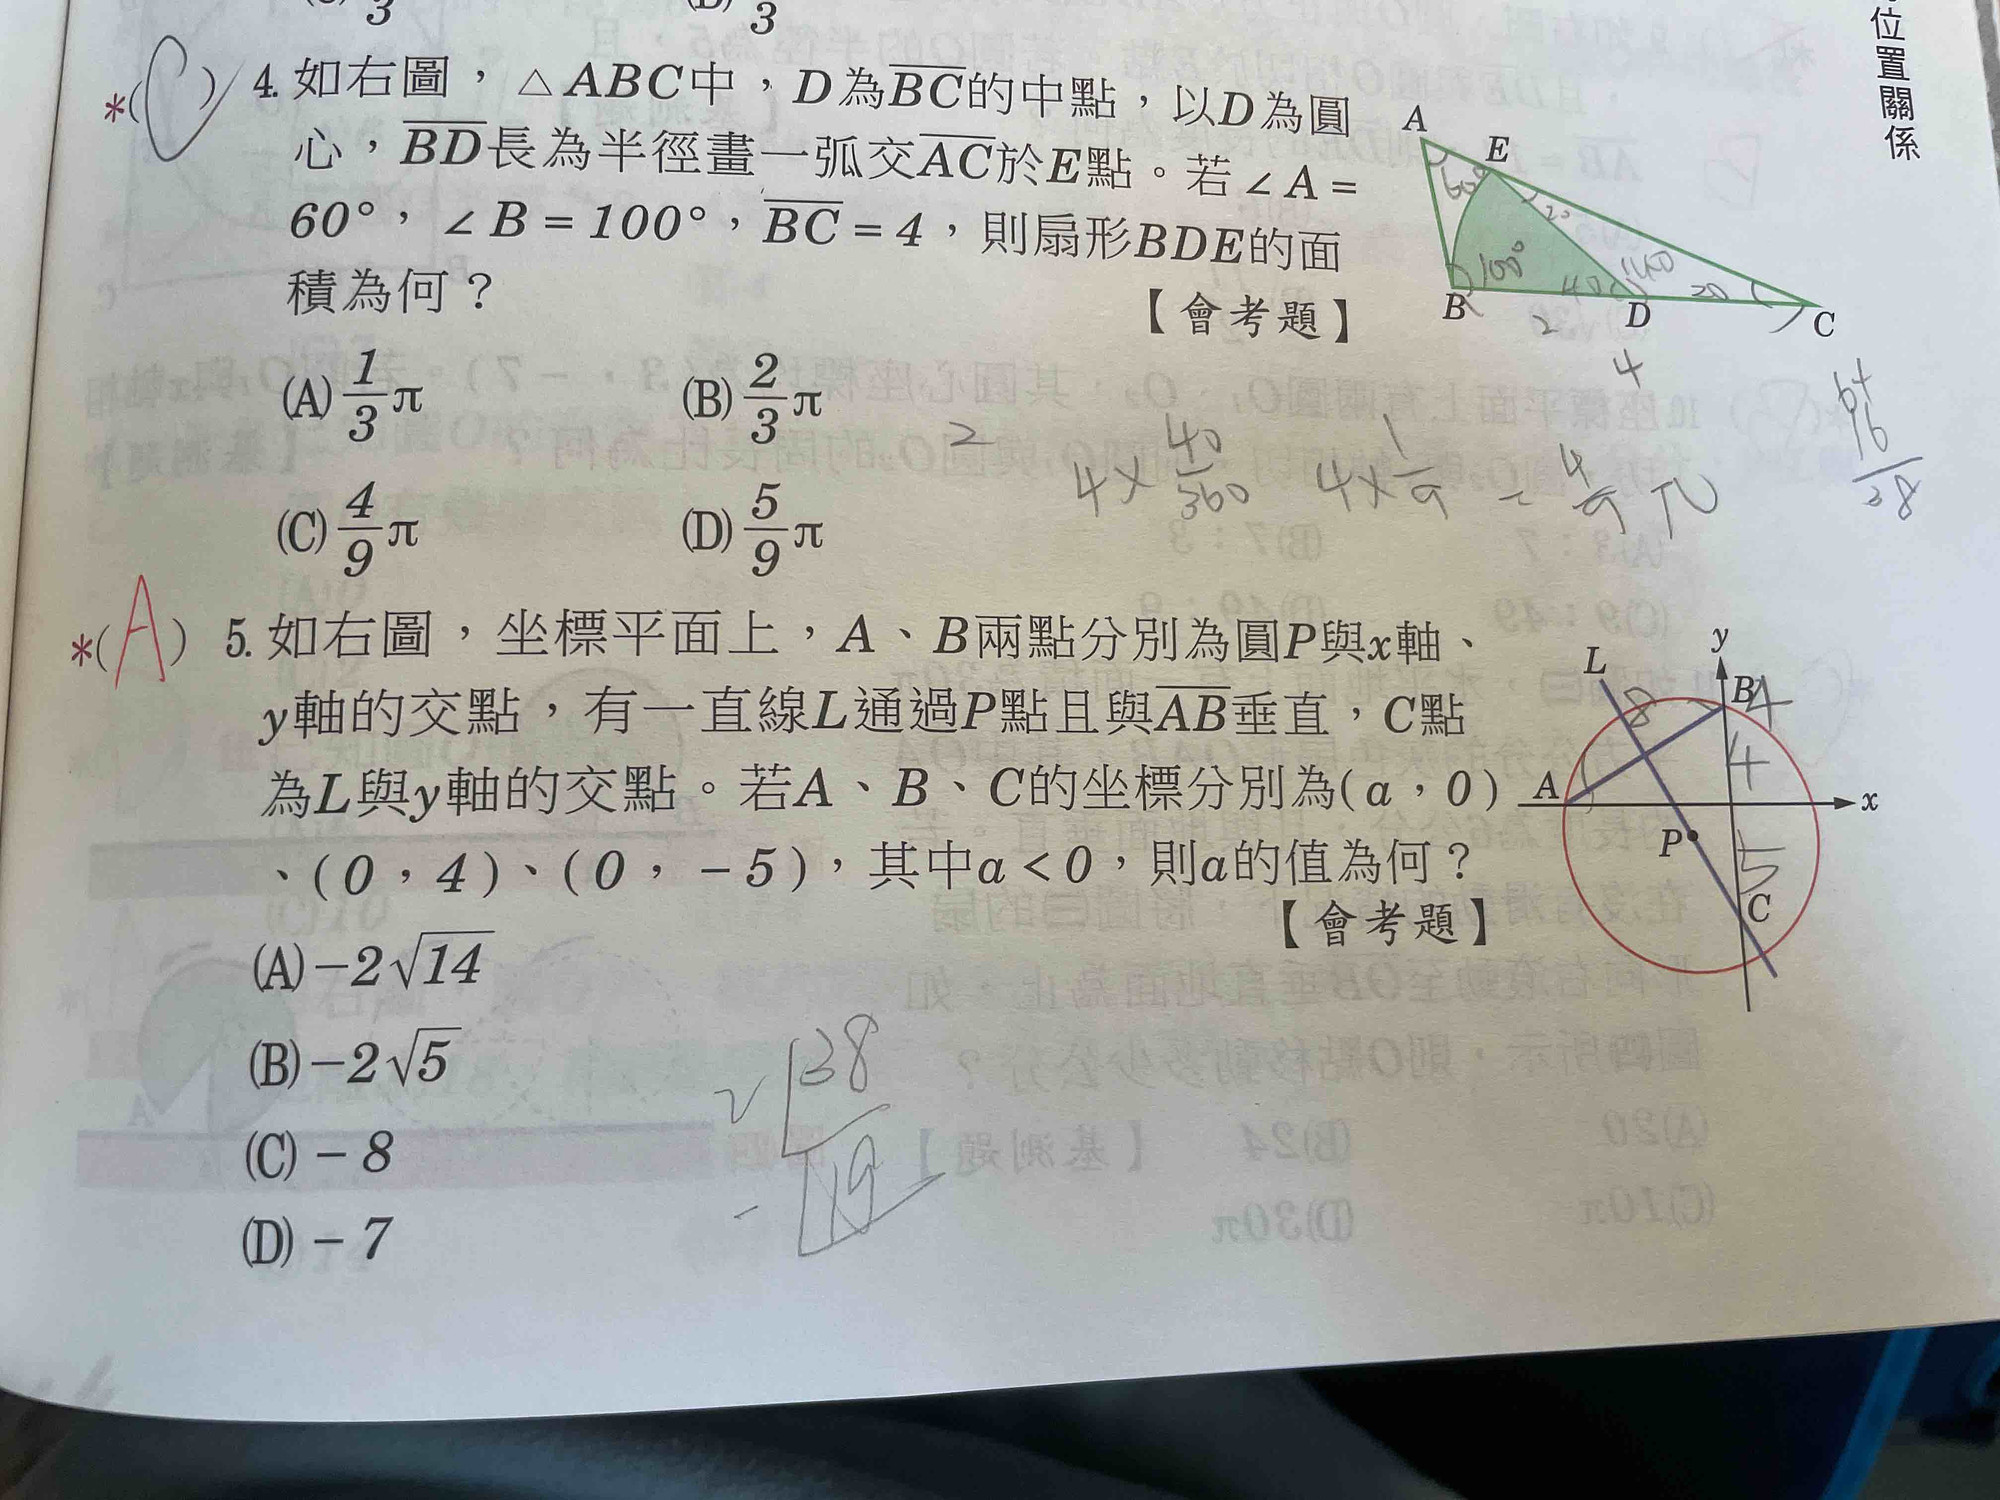 位置關係
3
3
*(C) 4. 如右圖,△ABC中,D為BC的中點,以D為圓
心,BD長為半徑畫一弧交AC於E點。若∠A=
60°,∠B=100°,BC=4,則扇形BDE的面
積為何?
【會考題】
(A) 1/3 π
(B) 2/3 π
(C) 4/9 π
(D) 5/9 π
A
E
60°
20
100°
40
140
20
B
D
C
2
4
2
4×40/360
4×1/9 = 4/9 π
64
16
*(A) 5. 如右圖,坐標平面上,A、B兩點分別為圓P與x軸、
y軸的交點,有一直線L通過P點且與AB垂直,C點
為L與y軸的交點。若A、B、C的坐標分別為(a,0)
、(0,4)、(0,-5),其中a<0,則a的值為何?
【會考題】
(A) -2√14
(B) -2√5
(C) -8
(D) -7
y
L
B
4
8
4
A
x
P
5
C
2
38
19